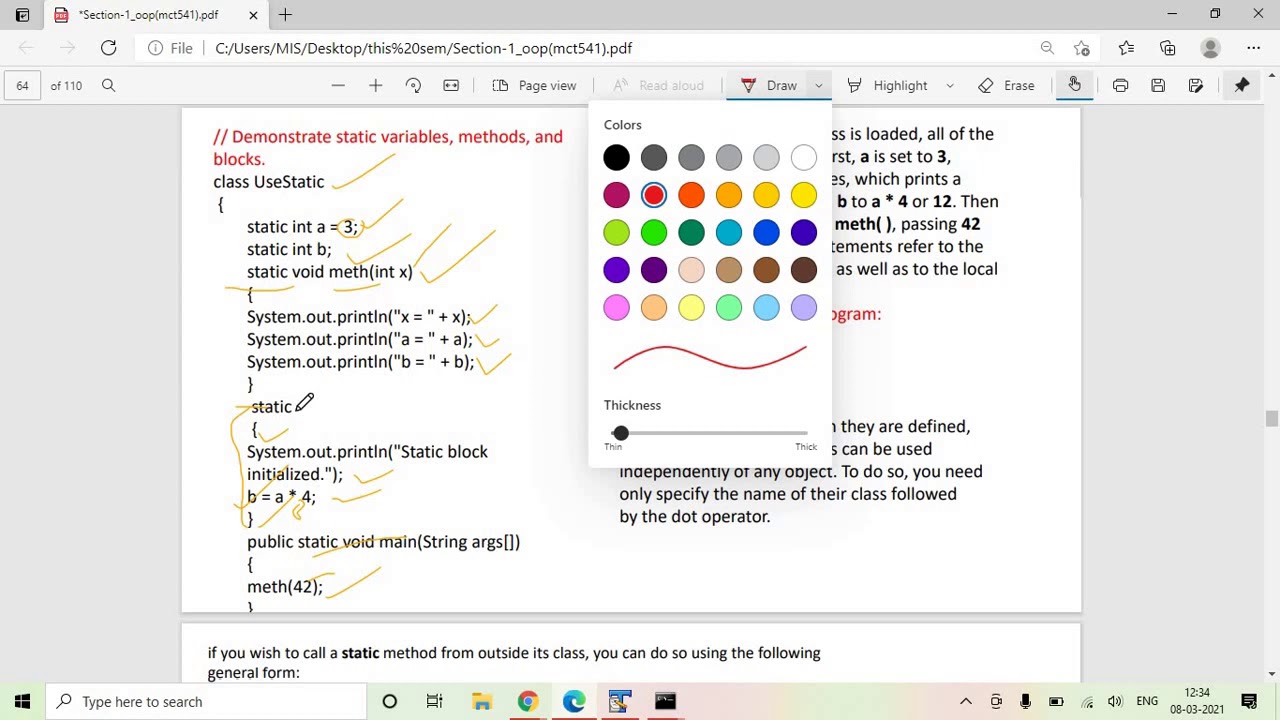 *Section-1_oop(mct541).pdf
File
C:/Users/MIS/Desktop/this%20sem/Section-1_oop(mct541).pdf
64 of 110
Page view
Read aloud
Draw
Highlight
Erase
// Demonstrate static variables, methods, and
blocks.
class UseStatic
{
static int a = 3;
static int b;
static void meth(int x)
{
System.out.println("x = " + x);
System.out.println("a = " + a);
System.out.println("b = " + b);
}
static
{
System.out.println("Static block
initialized.");
b = a * 4;
}
public static void main(String args[])
{
meth(42);
}
Colors
Thickness
Thin
Thick
ss is loaded, all of the
rst, a is set to 3,
es, which prints a
b to a * 4 or 12. Then
meth( ), passing 42
tements refer to the
as well as to the local
ogram:
n they are defined,
s can be used
independently of any object. To do so, you need
only specify the name of their class followed
by the dot operator.
if you wish to call a static method from outside its class, you can do so using the following
general form:
Type here to search
ENG
12:34
08-03-2021